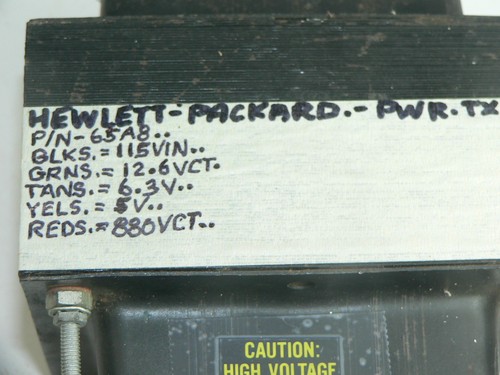 HEWLETT-PACKARD.-PWR.TX
P/N-65A8..
BLKS.=115VIN..
GRNS.=12.6VCT.
TANS.=6.3V..
YELS.=5V..
REDS.=880VCT..
CAUTION:
HIGH VOLTAGE